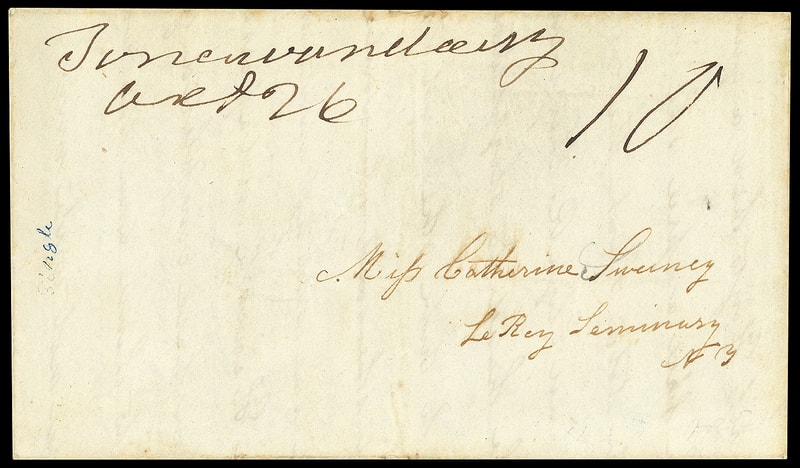 Tonawanda NY
Oct 26
10
Single
Miss Catherine Sweeney
LeRoy Seminary
N Y